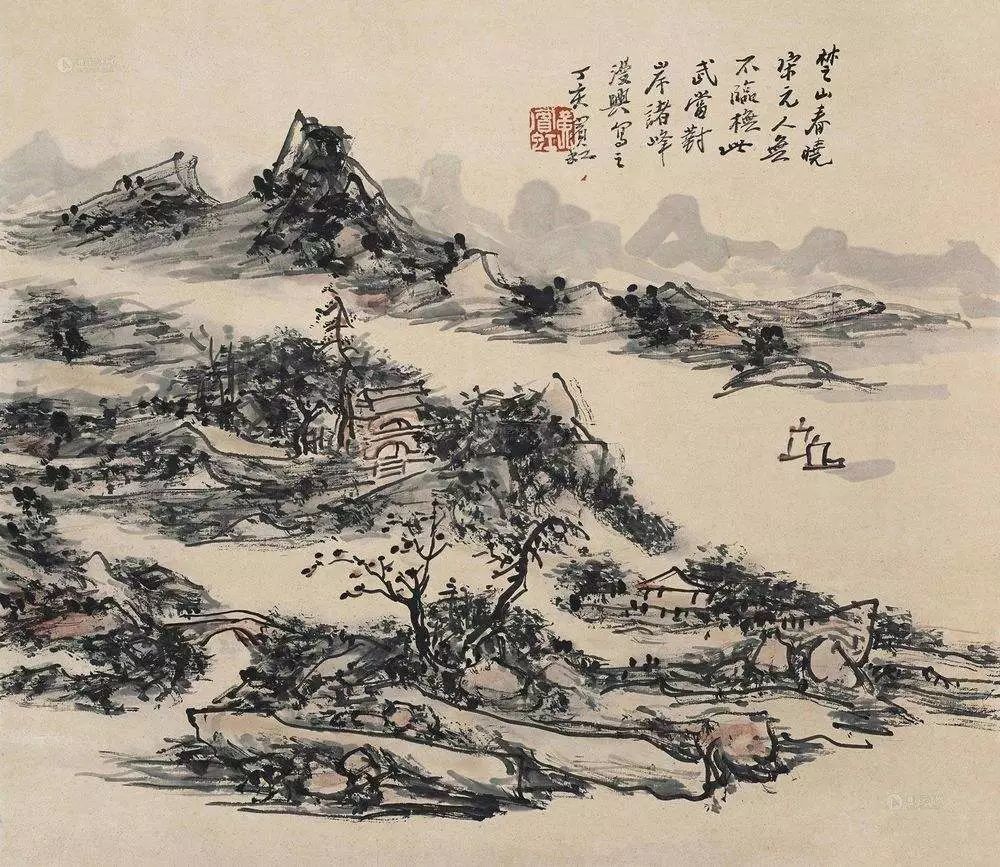 楚山春曉
宋元人無
不臨橅此
武當對
岸諸峰
漫興寫之
丁亥賓虹
黃賓虹